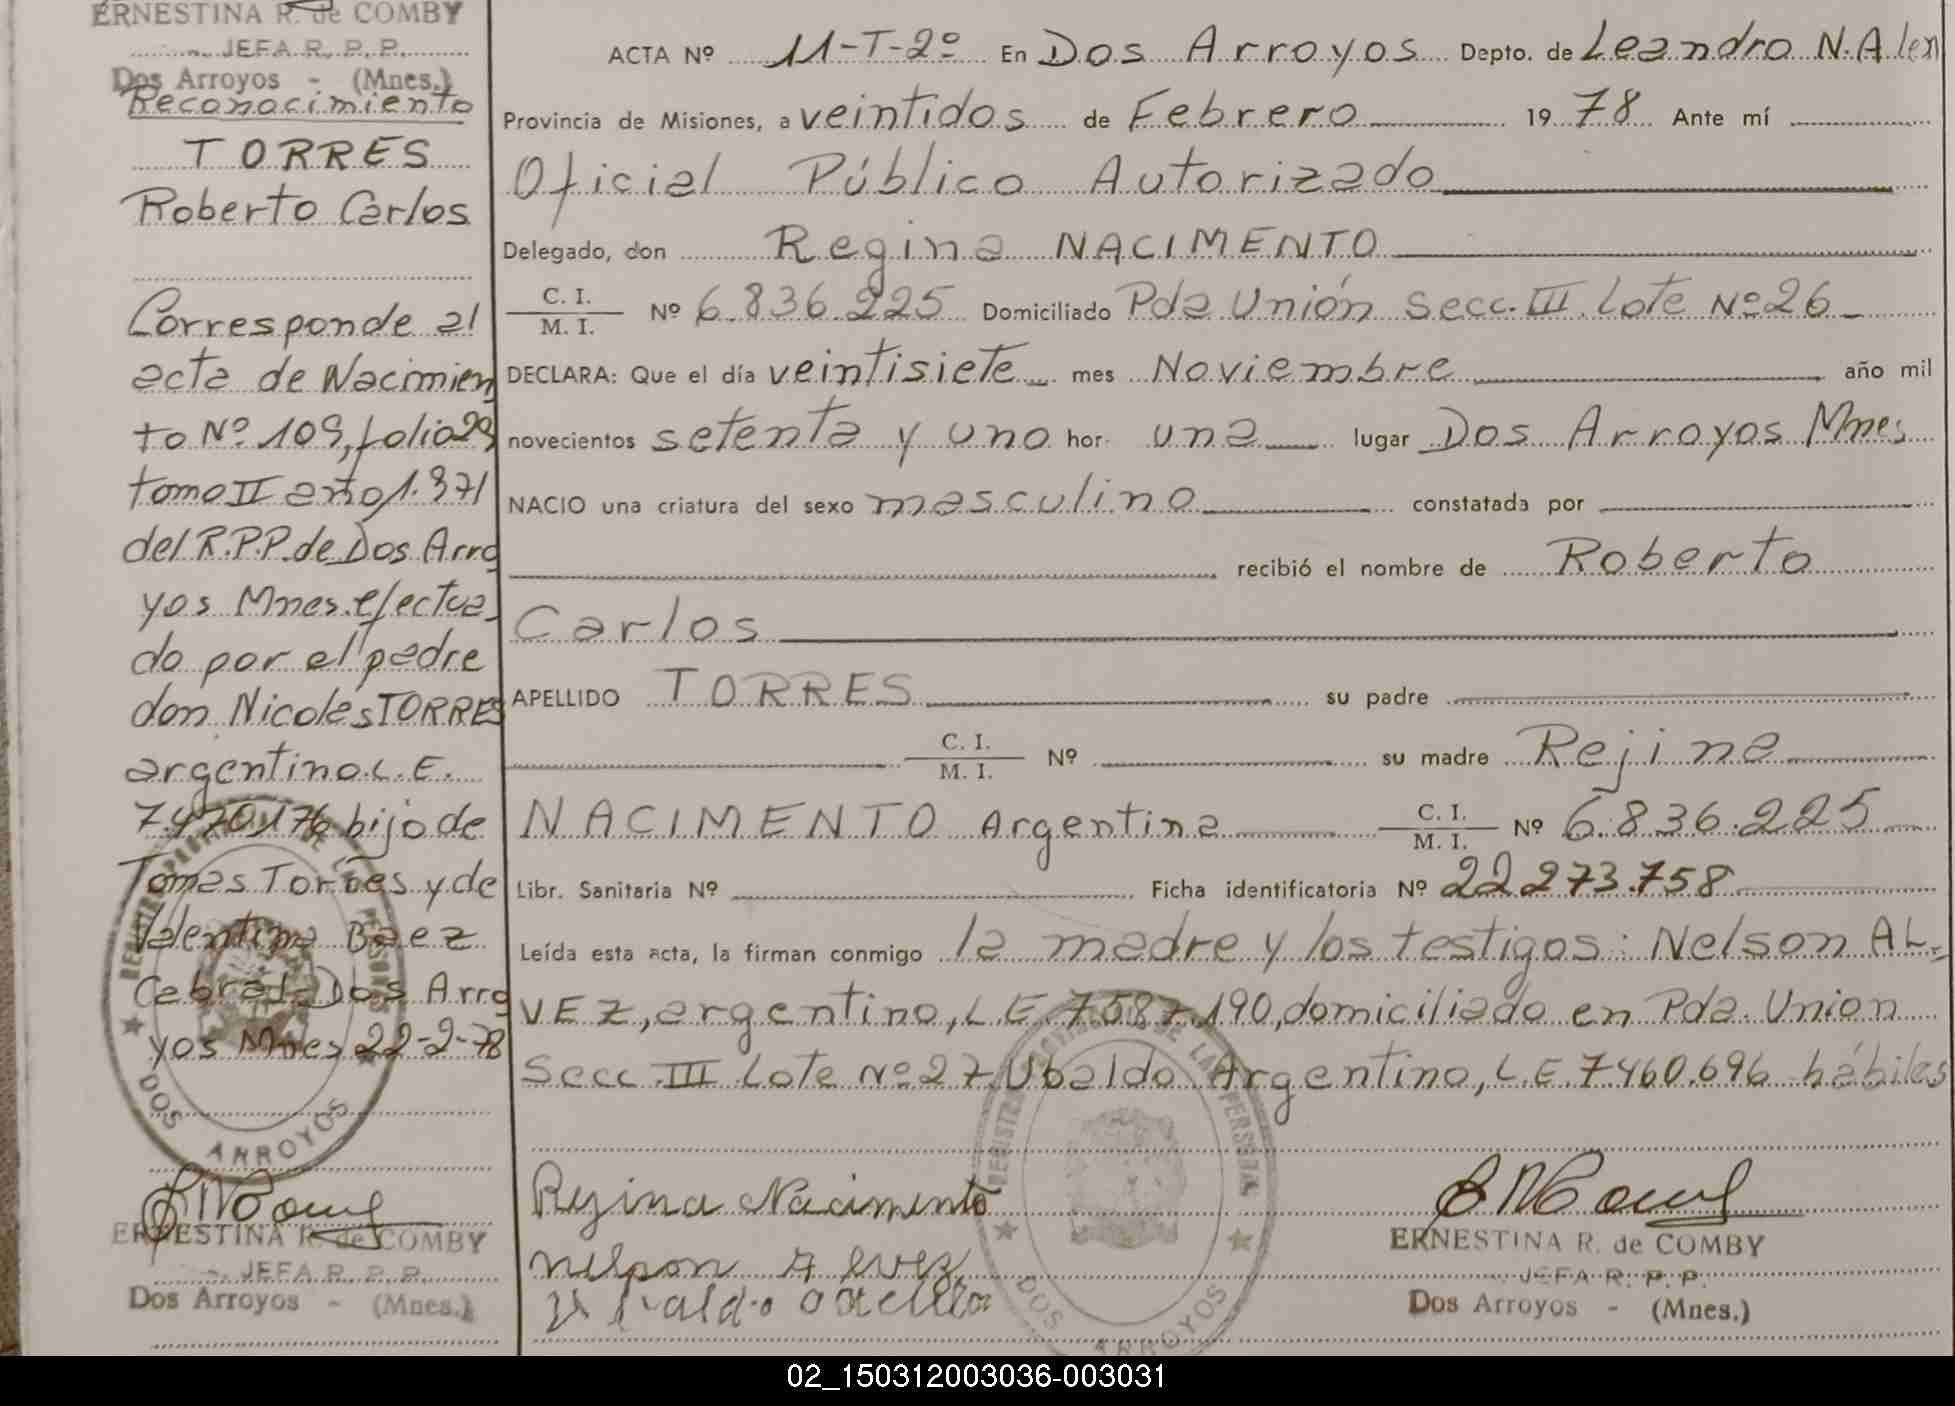 ERNESTINA R. de COMBY
JEFA R. P. P.
Dos Arroyos - (Mnes.)
Reconocimiento
TORRES
Roberto Carlos
Corresponde al
acta de Nacimien
to Nº 109, folio 29
tomo II año 1.971
del R.P.P. de Dos Arro
yos Mnes. efectua
do por el padre
don Nicolas TORRES
argentino L.E.
7.470.176 hijo de
Tomas Torres y de
Valentina Baez
Cabral. Dos Arro
yos Mnes 22-2-78
DOS ARROYOS
ERNESTINA R. de COMBY
JEFA R. P. P.
Dos Arroyos - (Mnes.)
ACTA Nº 11-T-2º En Dos Arroyos Depto. de Leandro N. Alen
Provincia de Misiones, a veintidos de Febrero 1978 Ante mí
Oficial Público Autorizado
Delegado, don Regina NACIMENTO
C. I.
M. I. Nº 6.836.225 Domiciliado Pda Unión Secc. III Lote Nº 26
DECLARA: Que el día veintisiete mes Noviembre año mil
novecientos setenta y uno hor. una lugar Dos Arroyos Mnes
NACIO una criatura del sexo masculino constatada por
recibió el nombre de Roberto
Carlos
APELLIDO TORRES su padre
C. I.
M. I. Nº su madre Rejina
NACIMENTO Argentina C. I.
M. I. Nº 6.836.225
Libr. Sanitaria Nº Ficha identificatoria Nº 22.273.758
Leída esta acta, la firman conmigo la madre y los testigos: Nelson AL-
VEZ, argentino, L.E. 7587.190, domiciliado en Pda. Union
Secc. III Lote Nº 27. Ubaldo Argentino, L.E. 7460.696 hábiles
Regina Nacimento
Nelson Alvez
DOS ARROYOS
ERNESTINA R. de COMBY
JEFA R. P. P.
Dos Arroyos - (Mnes.)
02_150312003036-003031